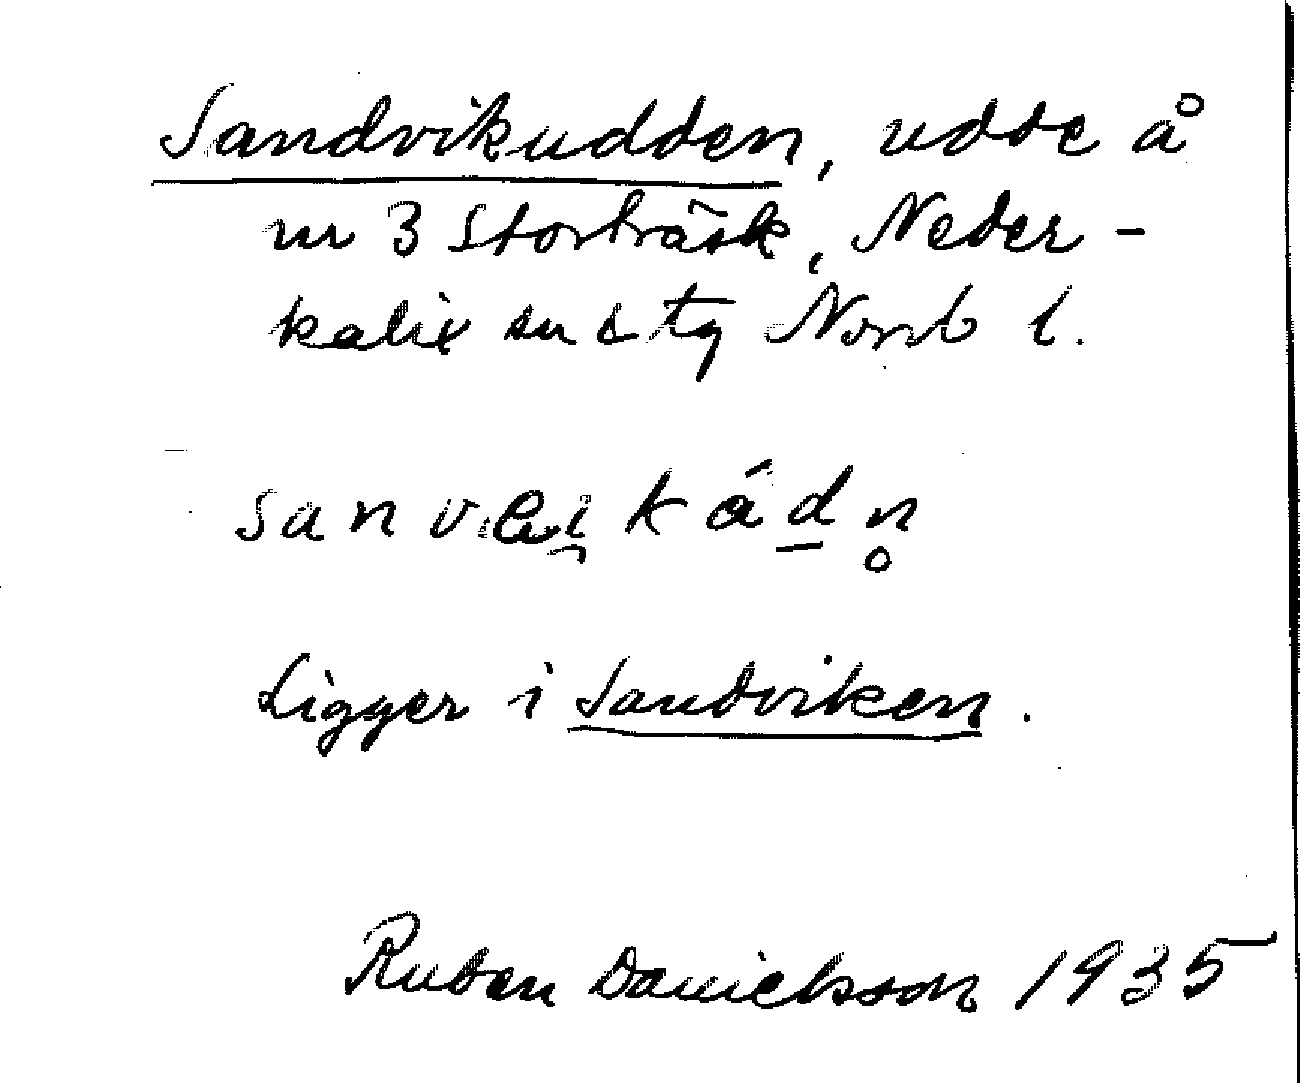 Sandvikudden, udde å
nr 3 Storträsk, Neder-
kalix sn o tg Norrb l.
sanveikádn
Ligger i Sandviken.
Ruben Danielsson 1935